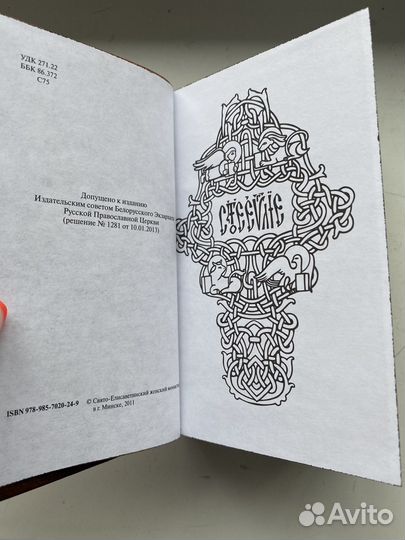 УДК 271.22
ББК 86.372
С75
Допущено к изданию
Издательским советом Белорусского Экзархата
Русской Православной Церкви
(решение № 1281 от 10.01.2013)
ISBN 978-985-7020-24-9
© Свято-Елисаветинский женский
в г. Минске, 2011
Avito